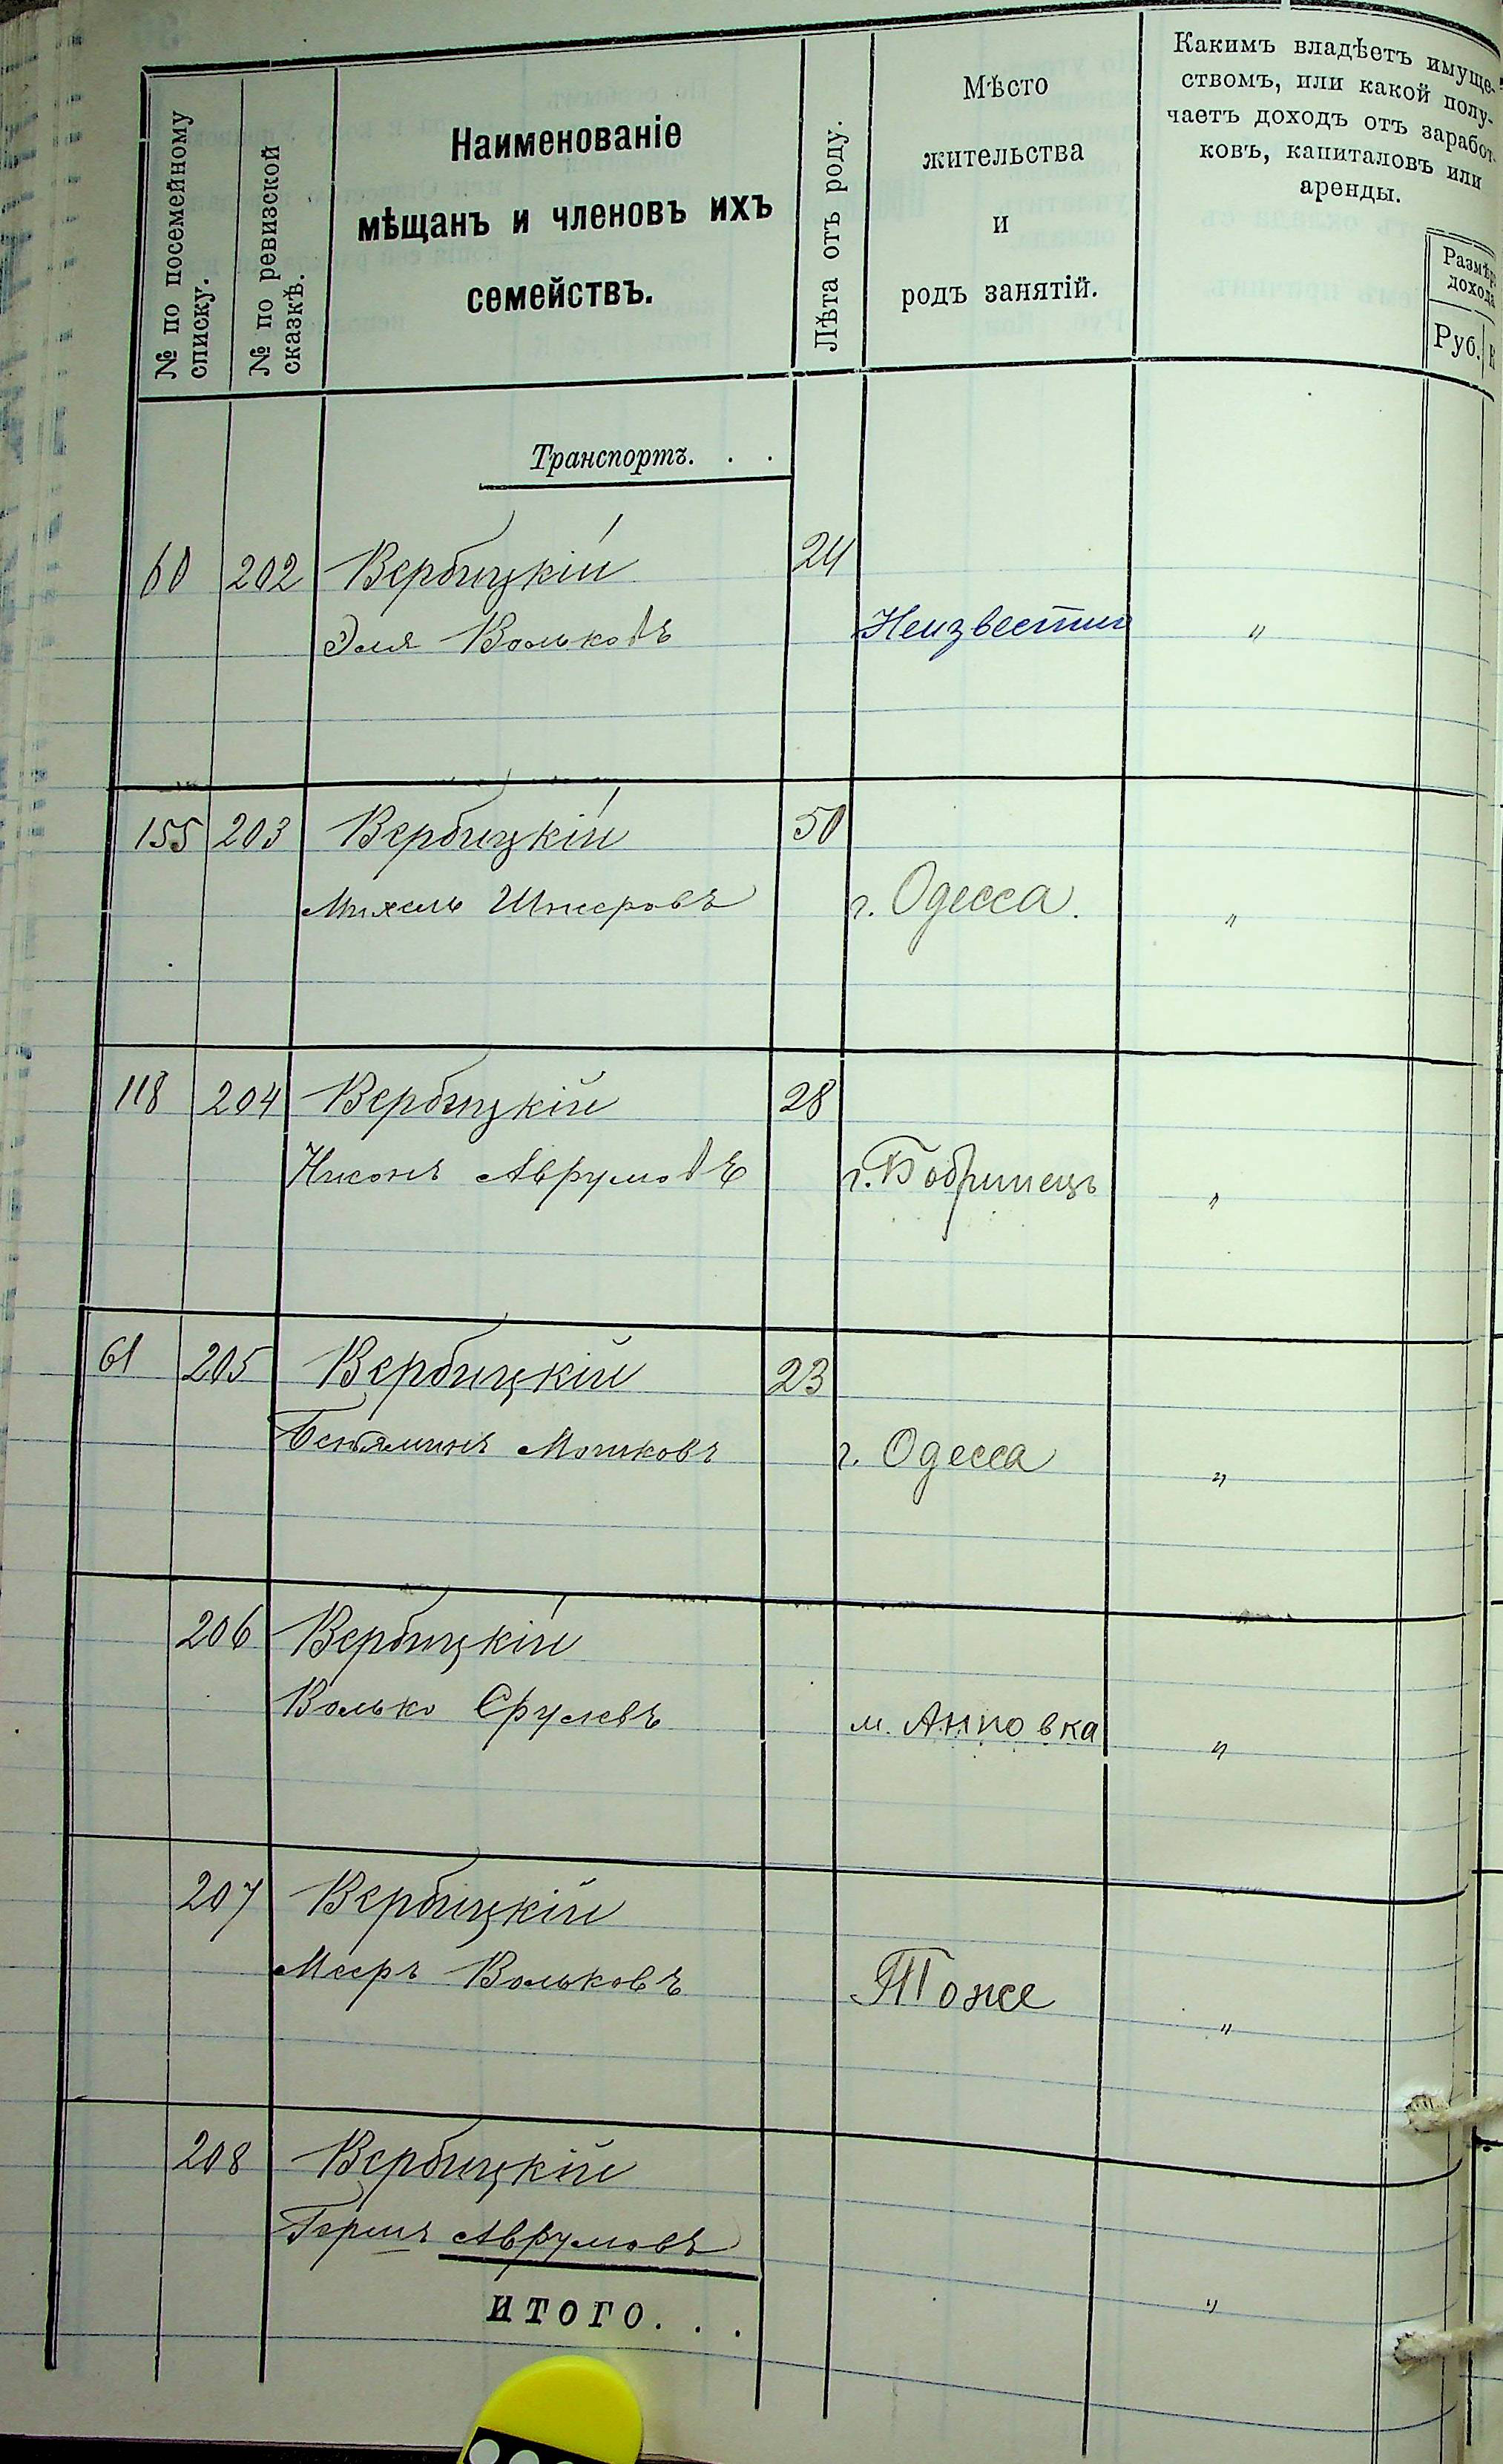 № по посемейному
списку.
№ по ревизской
сказкѣ.
Наименованіе
мѣщанъ и членовъ ихъ
семействъ.
Лѣта отъ роду.
Мѣсто
жительства
и
родъ занятій.
Какимъ владѣетъ имуще-
ствомъ, или какой полу-
чаетъ доходъ отъ заработ-
ковъ, капиталовъ или
аренды.
Размѣръ
дохода
Руб. К
Транспортъ. . .
60 202 Вербицкій 24
Эля Вольковъ Неизвестно "
155 203 Вербицкій 50
Михель Шнеровъ г. Одесса. "
118 204 Вербицкій 28
Нисонъ Аврумовъ г. Бобринецъ "
61 205 Вербицкій 23
Беньяминъ Мошковъ г. Одесса "
206 Вербицкій
Волько Срулевъ м. Анновка "
207 Вербицкій
Мееръ Вольковъ Тоже "
208 Вербицкій
Гершъ Аврумовъ
ИТОГО. . . "